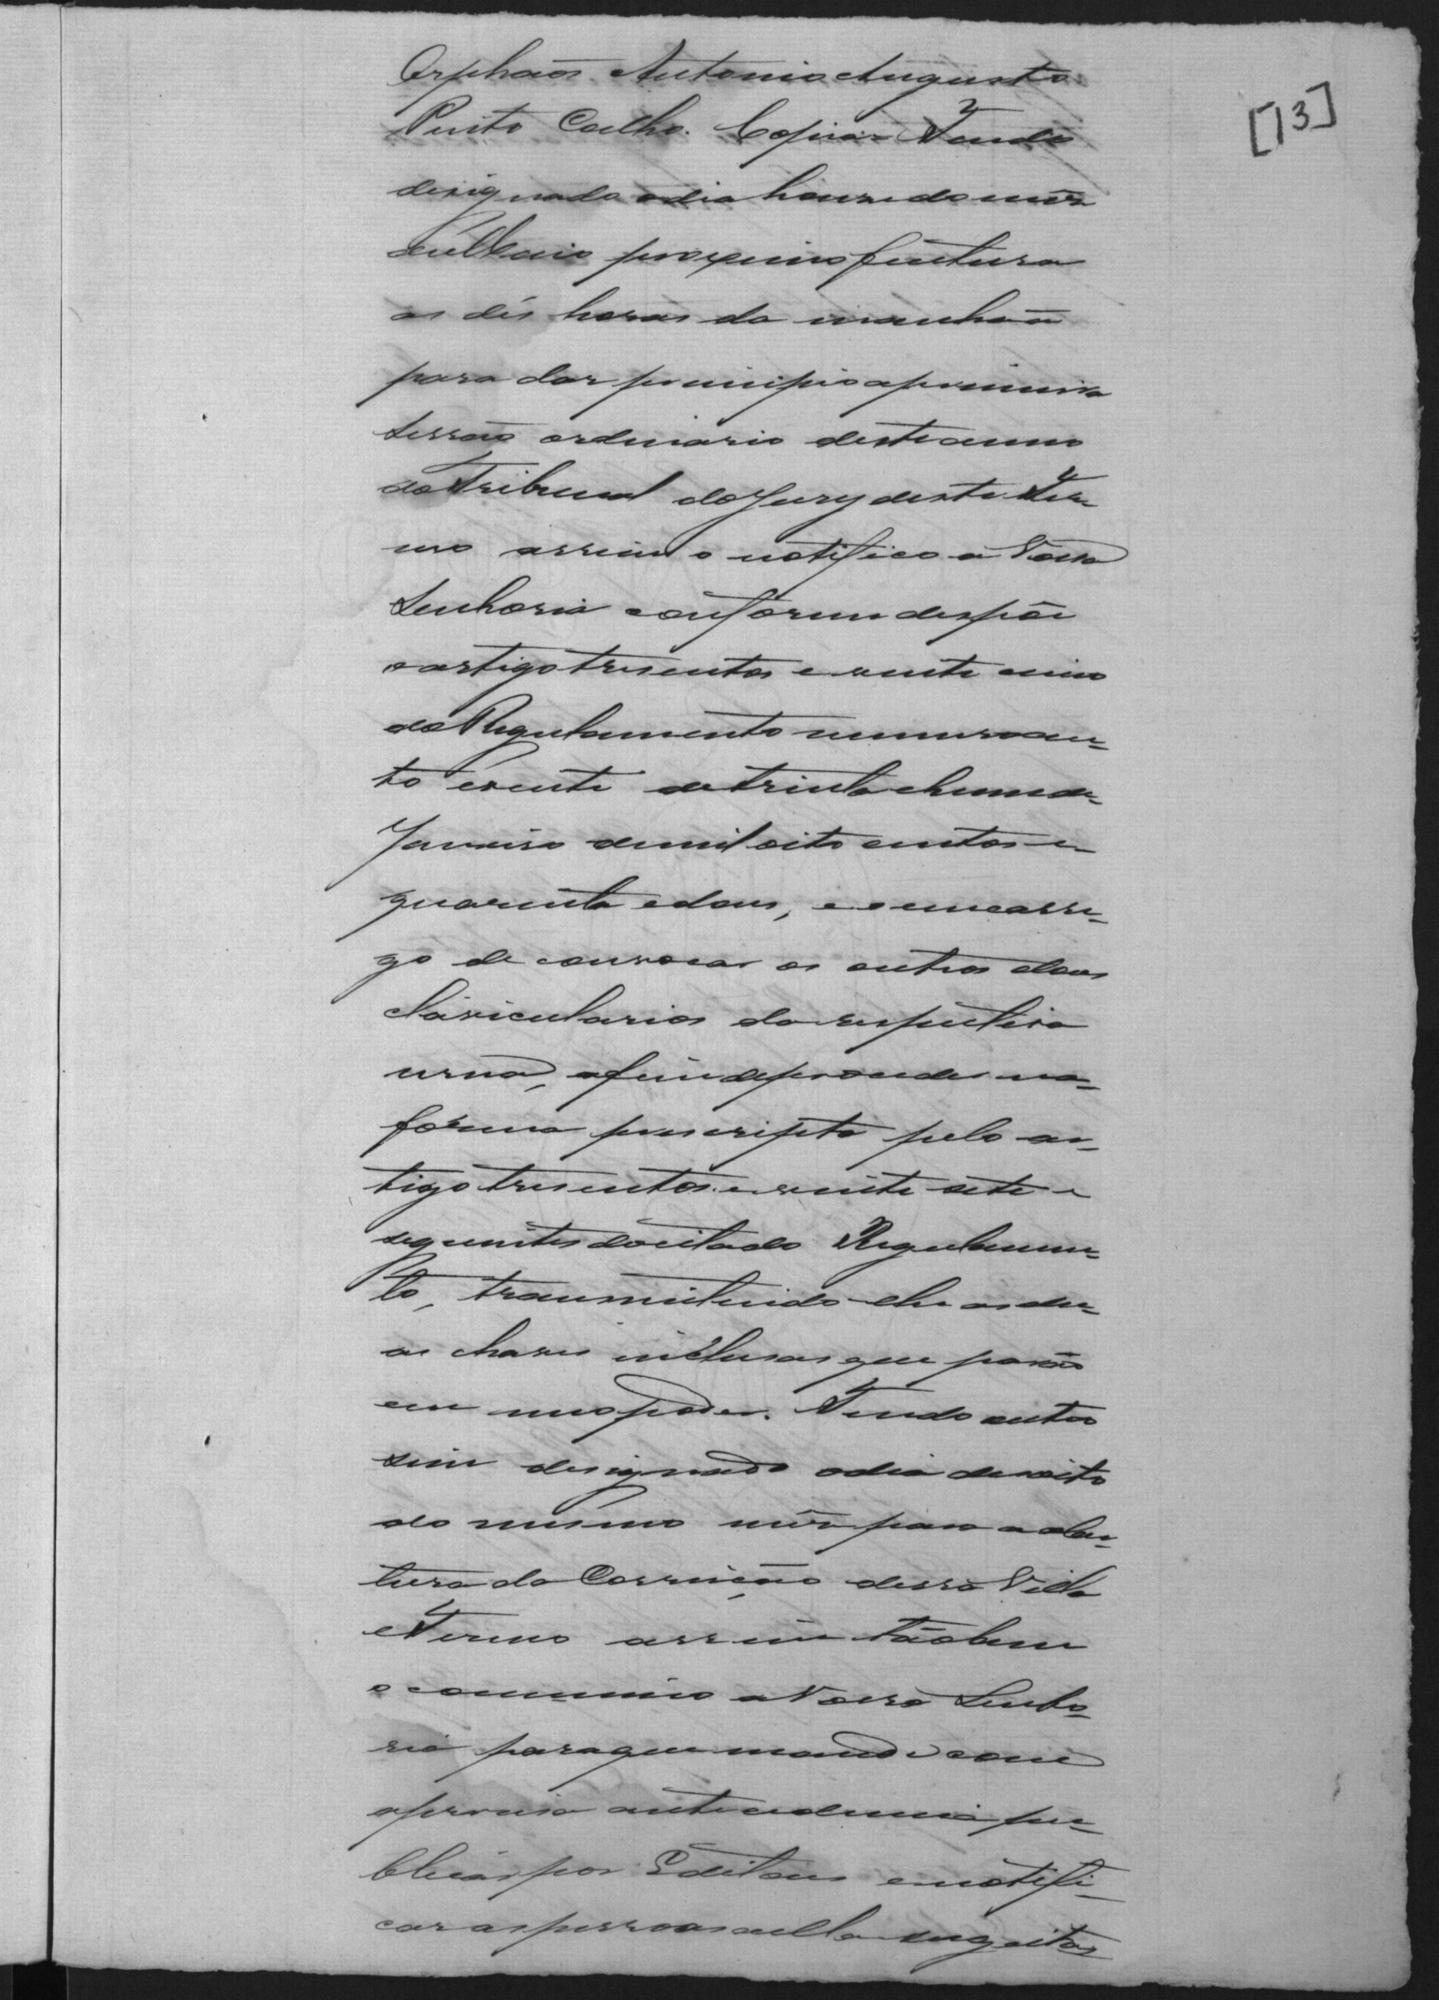 [13]
Orphaos Antonio Augusto
Pinto Coelho. Copia = Tendo
designado o dia honze do mêz
de Maio proximo futuro
as dés horas da manhaã
para dar principio a primeira
sessão ordinaria deste anno
do Tribunal do Jury deste Ter-
mo assim o notifico a Vossa
Senhoria conforme despõe
o artigo tresentos e vinte cinco
do Regulamento numero cen-
to e vente de trinta e hum de
Janeiro de mil oito centos e
quarenta e dous, e o encarre-
go de convocar os outros dous
clavicularios da respectiva
urna, afim de proceder na
forma prescripta pelo ar-
tigo tresentos e vinte sete e
seguintes do citado Regulamen-
to, transmitindo-lhe as du-
as chaves inclusas que parão
em meo poder. Tendo outro
sim designado o dia desoito
do mesmo mêz para a aber-
tura da Correição dessa Villa
e Termo assim tãobem
o communico a Vossa Senho-
ria para que mande com
a precisa antecedencia pu-
blicar por Editaes e notifi-
car as pessoas a ella sugeitas